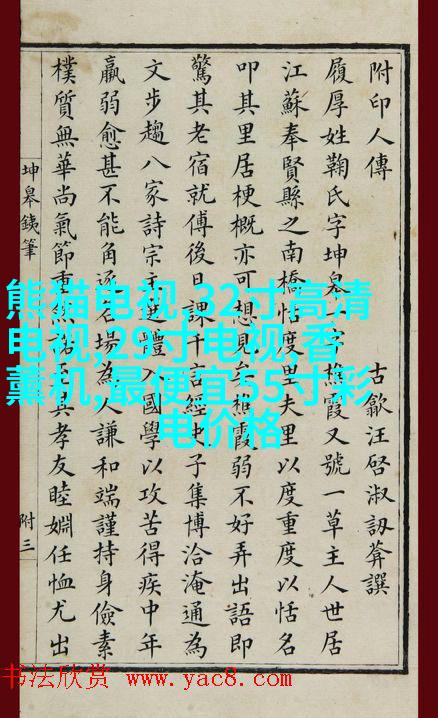 附印人傳 古歙汪啓淑訒葊譔
履厚姓鞠氏字坤皋一字樵霞又號一草主人世居
江蘇奉賢縣之南橋恬度里夫里以度重度以恬名
叩其里居梗概亦可想見矣樵霞弱不好弄出語即
驚其老宿就傅後日課千言經史子集博洽淹通為
文步趨八家詩宗主選體入國學以攻苦得疾中年
羸弱愈甚不能角逐名場為人謙和端謹持身儉素
樸質無華尚氣節重然諾至其孝友睦婣任恤尤出
坤皋銕筆
附三
熊猫电视,32寸高清
电视,29寸电视,香
薰机,最便宜55寸彩
电价格
书法欣赏 www.yac8.com